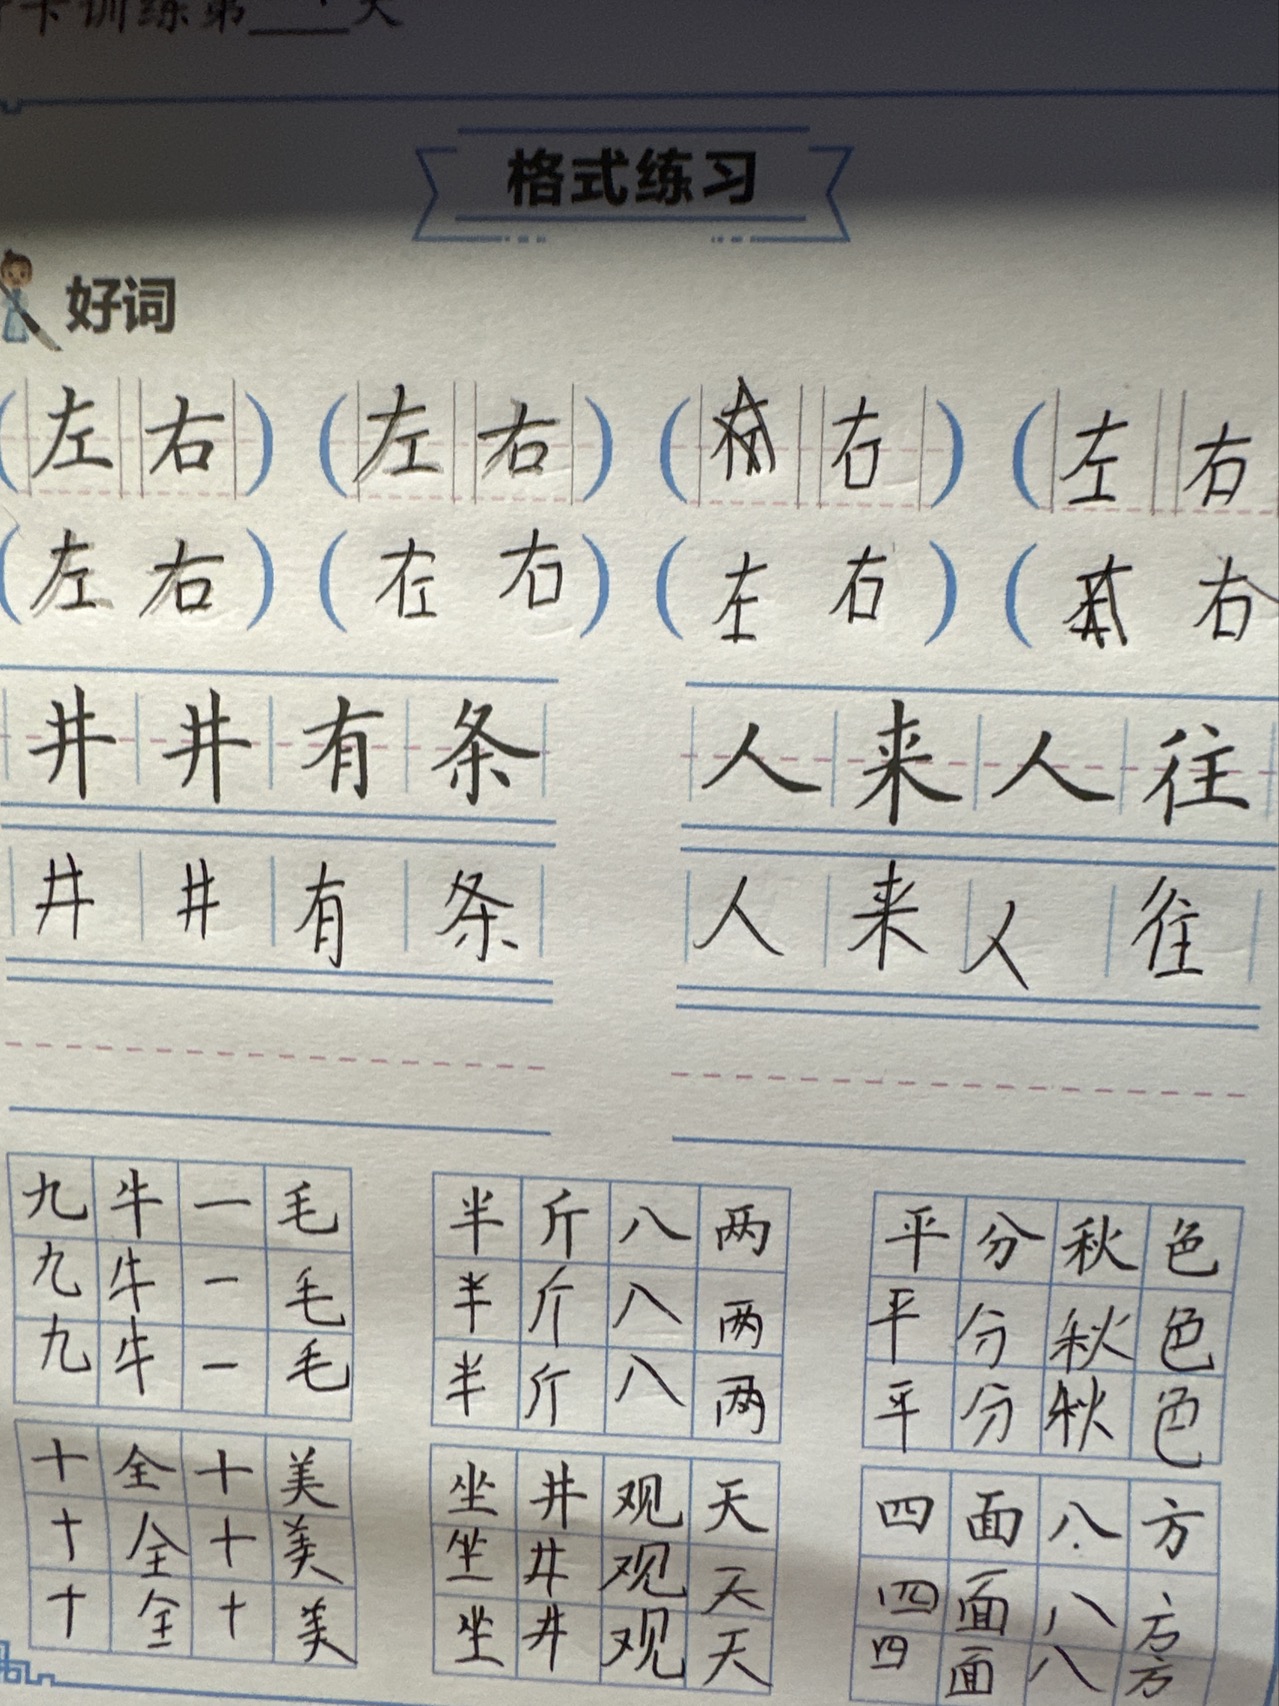 卡训练第____天
格式练习
好词
(左右)(左右)( 右)(左右)
(左右)(左右)(左右)( 右)
井井有条 人来人往
井井有条 人来人往
九牛一毛 半斤八两 平分秋色
九牛一毛 半斤八两 平分秋色
九牛一毛 半斤八两 平分秋色
十全十美 坐井观天 四面八方
十全十美 坐井观天 四面八方
十全十美 坐井观天 四面八方